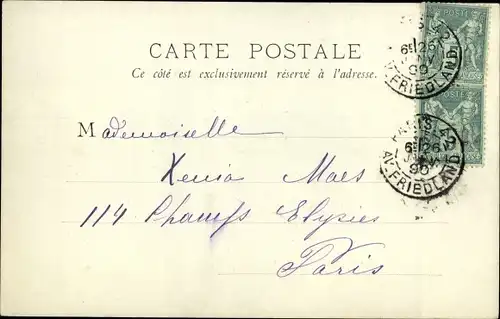 CARTE POSTALE
Ce côté est exclusivement réservé à l'adresse.
Mademoiselle
Xenia Maes
114 Champs Elysies
Paris
6E 26
JANV
99
AV. FRIEDLAND
6E 26
AV. FRIEDLAND